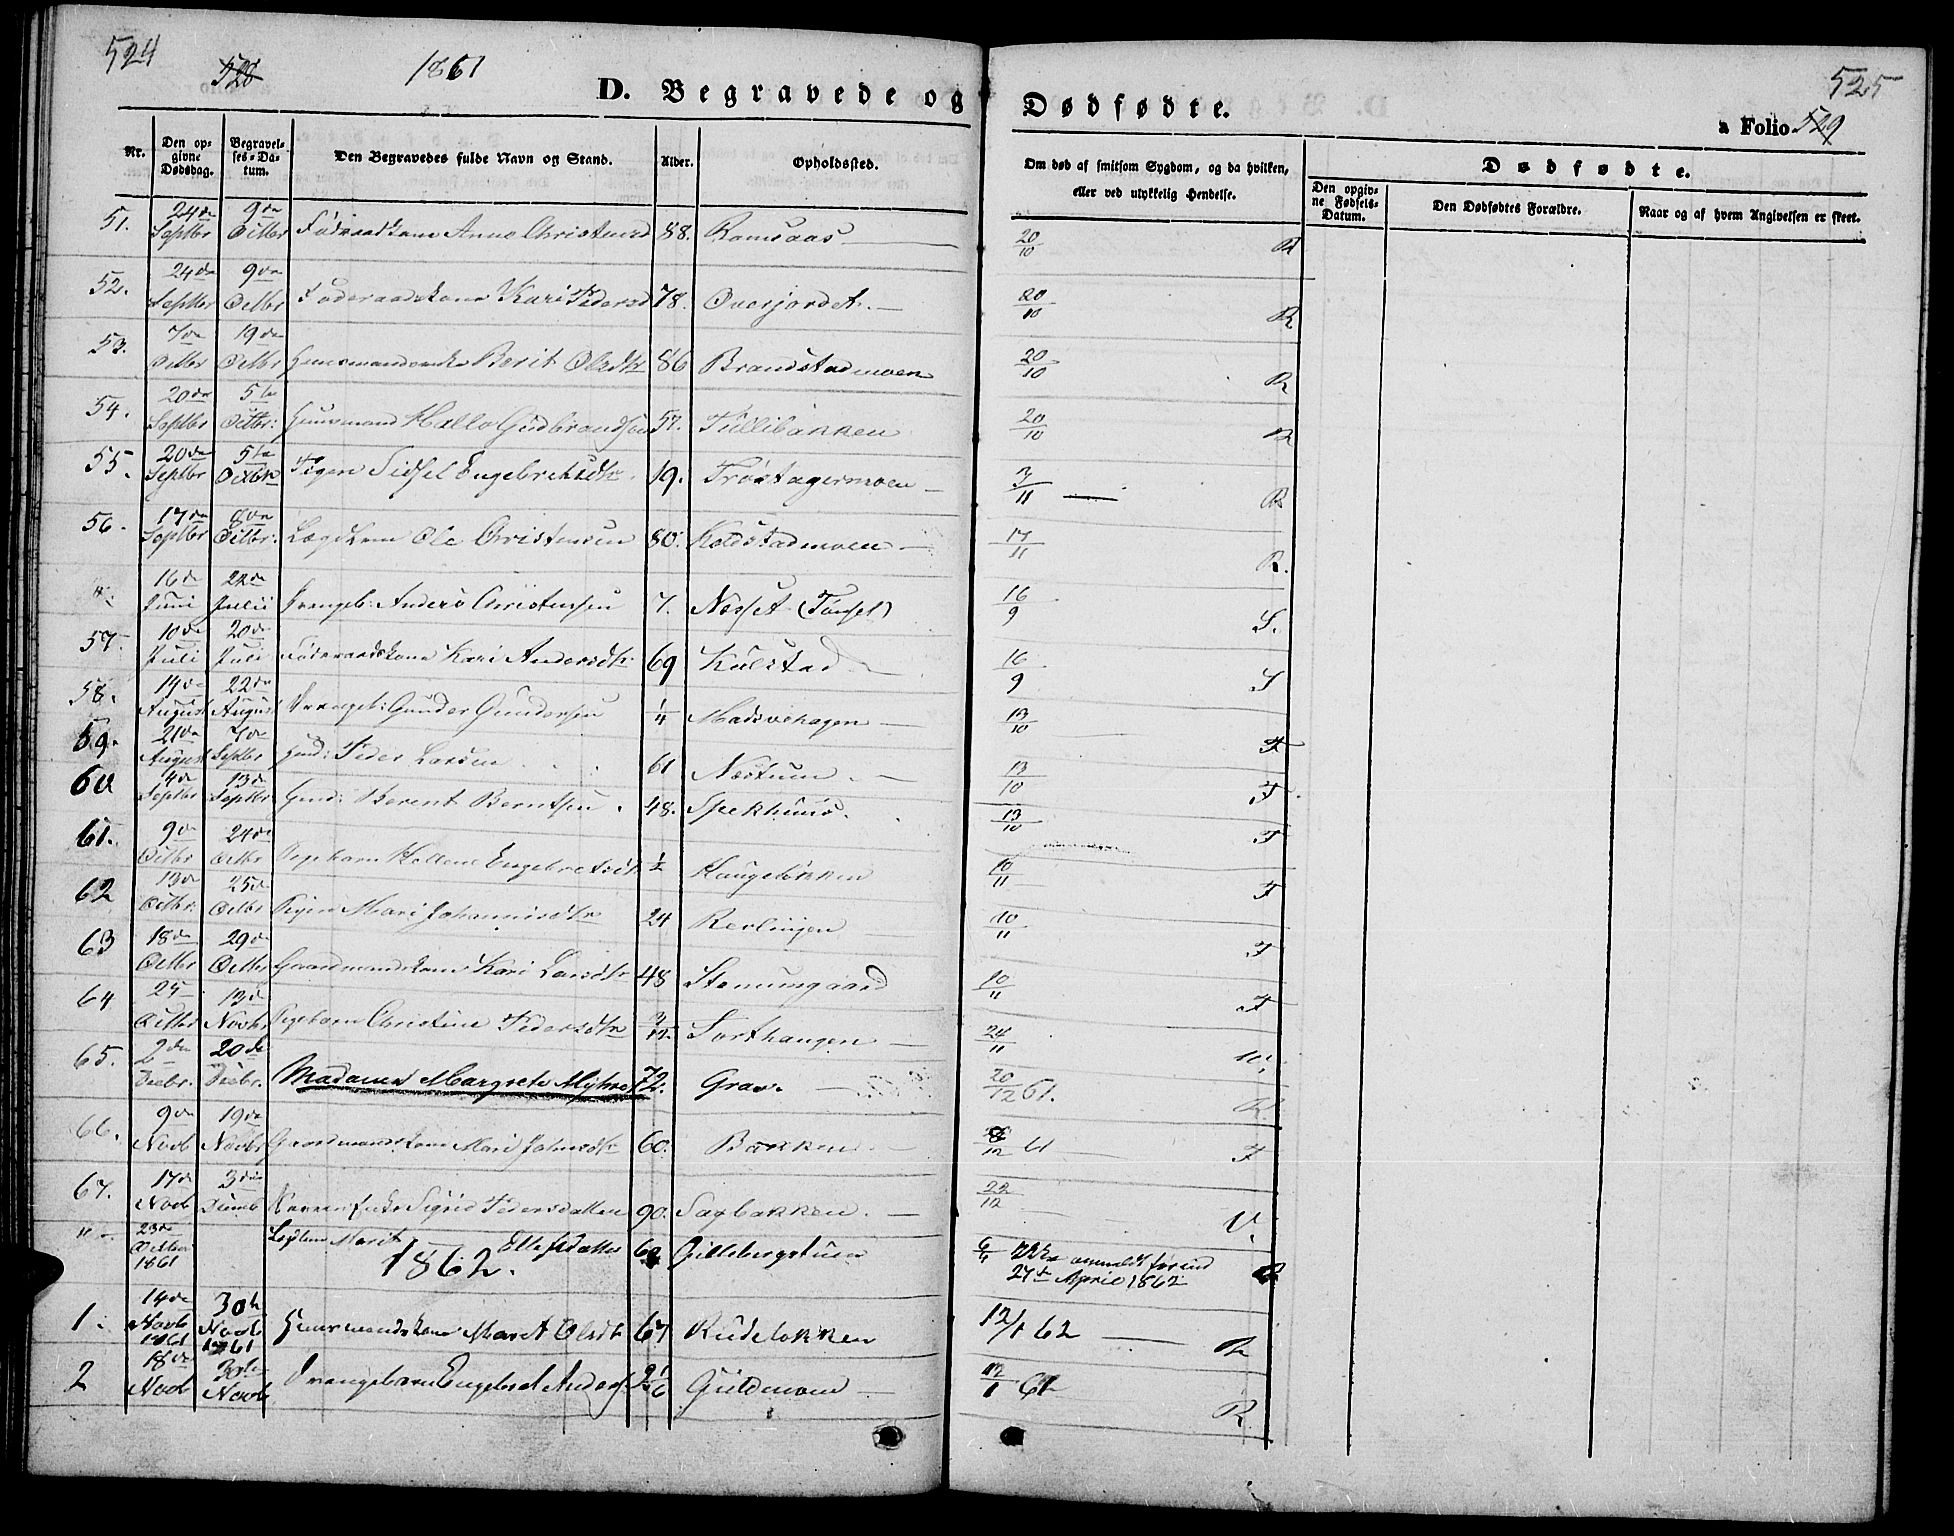 524
528
1861
525
D. Begravede og Dødfødte.
a Folio 529
Nr.
Den opgivne Dødsdag.
Begravelses-Datum.
Den Begravedes fulde Navn og Stand.
Alder.
Opholdssted.
Om død af smitsom Sygdom, og da hvilken, eller ved ulykkelig Hendelse.
Dødfødte.
Den opgivne Fødsels-Datum.
Den Dødfødtes Forældre.
Naar og af hvem Angivelsen er skeet.
51. 24de Septbr 9de Octbr Föderaadskone Anne Christensd 88. Ramsaas 20/10 R
52. 24de Septbr 9de Octbr Föderaadskone Kari Pedersd 78. Overjordet. 20/10 R
53. 7de Octbr 19de Octbr Huusmandsenke Berit Olsdtr 86 Brandstadmoen 20/10 R
54. 20de Septbr 5te Octbr: Huusmand Halvo Gudbrandsen 57. Tullibakken 20/10 R
55. 20de Septbr 5te Octbr Pigen Sidsel Engebrektsdtr. 19. Tröstagermoen 3/11 R
56. 17de Septbr 8de Octbr. Lægdslem Ole Christensen 80. Koldstadmoen 17/11 R.
". 16de Juni 22de Julii Drengeb: Anders Christensen 7. Næsset (Tönset) 16/9 S.
57. 10de Juli 20de Juli Föderaadskone Kari Andersdtr. 69 Kulstad 16/9 S
58. 14de August 22de August Drengeb: Gunder Gundersen 1/4 Madsvehagen 13/10 F
59. 21de August 7de Septbr Gmd: Peder Larsen 61 Næstum. 13/10 F.
60 4de Septbr 13de Septbr Gmd: Berent Berntsen. 48. Spekhuus. 13/10 F
61. 9de Octbr 24de Octbr Pigebarn Hellene Engebretsdtr 1/2 Haugebakken 10/11 F
62 13de Octbr. 25de Octbr Pigen Mari Johannesdtr 24 Revlingen 10/11 F
63 18de Octbr 29de Octbr Gaardmandskone Kari Larsdtr 48 Stenumgaard 10/11 F
64 25 Octbr 13de Novbr Pigebarn Christine Pedersdtr 3/12 Sorthaugen 24/11 U.
65. 2den Decbr. 20de Decbr. Madamen Margrete Myhre 72. Grav. 20/12 61. R.
66. 9de Novb 19de Novbr Gaardmandskone Mari Johnsdtr 60. Bakken 8/12 61 F
67. 17de Novb 3die Decemb Sigrid Pedersdatter 90. Sagbakken. 22/12 U.
" 23de Octber 1861 Legdslem Marit Ellefsdatter Gillebergstuen anmeldt först ind 27de April 1862
1862.
1. 14de Novb 1861 30te Novb 1861 Huusmandskone Marit Olsdtr 67 Rudelökken 12/1 62 R
2 18de Novb 30te Novb Drengebarn Engebret Anders. 2 1/6 Guldmoen 12/1 62 R.